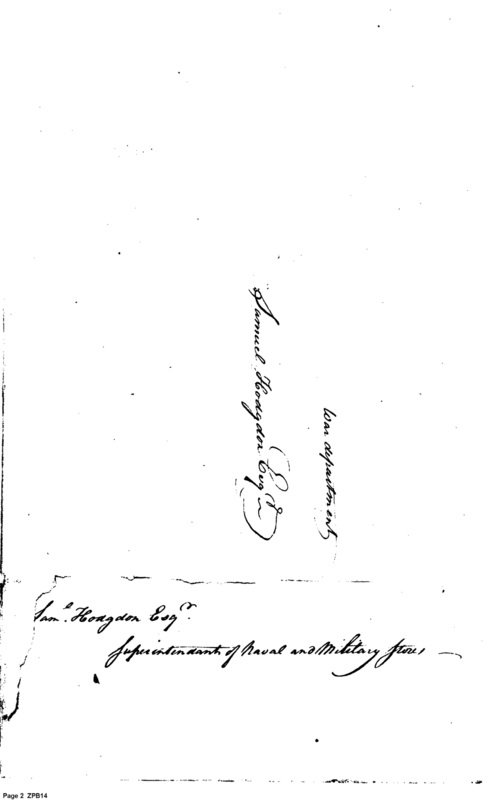 War department
Samuel Hodgdon Esqr
Saml. Hodgdon Esqr.
Superintendant of Naval and Military Stores
Page 2 ZPB14